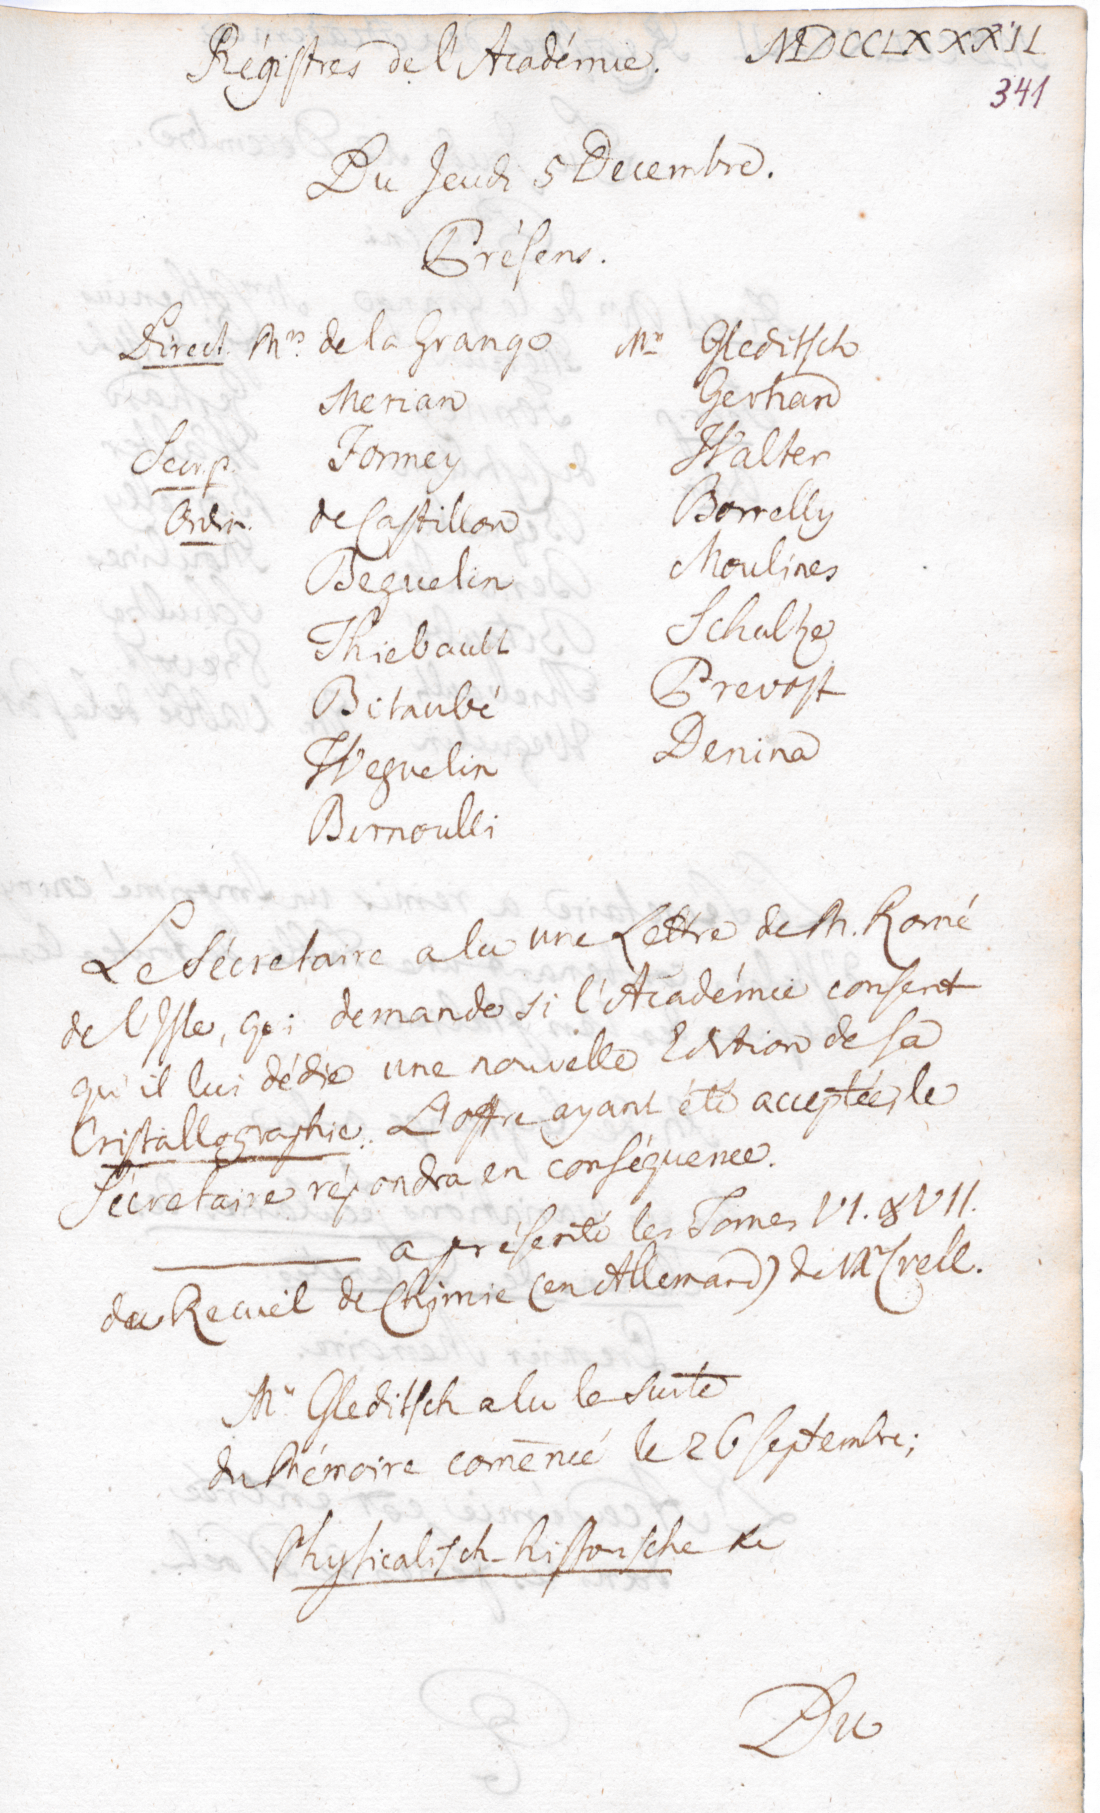 Régistres de l'Académie. MDCCLXXXII
341
Du Jeudi 5 Decembre.
Présens.
Direct. Mrs. de la Grange Mrs Gleditsch
Merian Gerhard
Secr. p. Formey Walter
Ordin. de Castillon Borrelly
Beguelin Moulines
Thiebault Schultze
Bitaubé Prevost
Weguelin Denina
Bernoulli
Le Sécretaire a lu une Lettre de M. Romé
de l'Isle, qui demande si l'Académie consent
qu'il lui dédie une nouvelle Edition de sa
Cristallographie. L'offre ayant été acceptée, le
Sécretaire répondra en conséquence.
——— a présenté les Tomes VI. & VII.
du Recueil de Chimie (en Allemand) de Mr Crell.
Mr Gleditsch a lu la suite
du Mémoire comencé le 26 Septembre;
Physicalisch-historische &c
Du